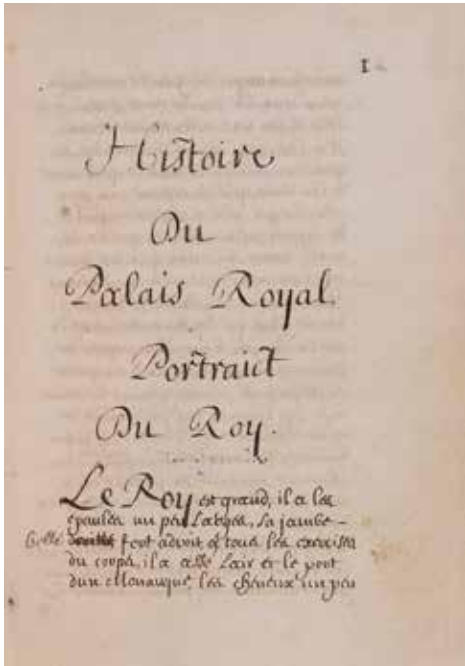 1
Histoire
Du
Palais Royal
Portraict
Du Roy.
Le Roy est grand, il a les
epaules un peu Larges, La jambe –
belle fort adroit a tous les exercises
du corps, il a Lair et le port
dun Monarque, les cheveux un peu